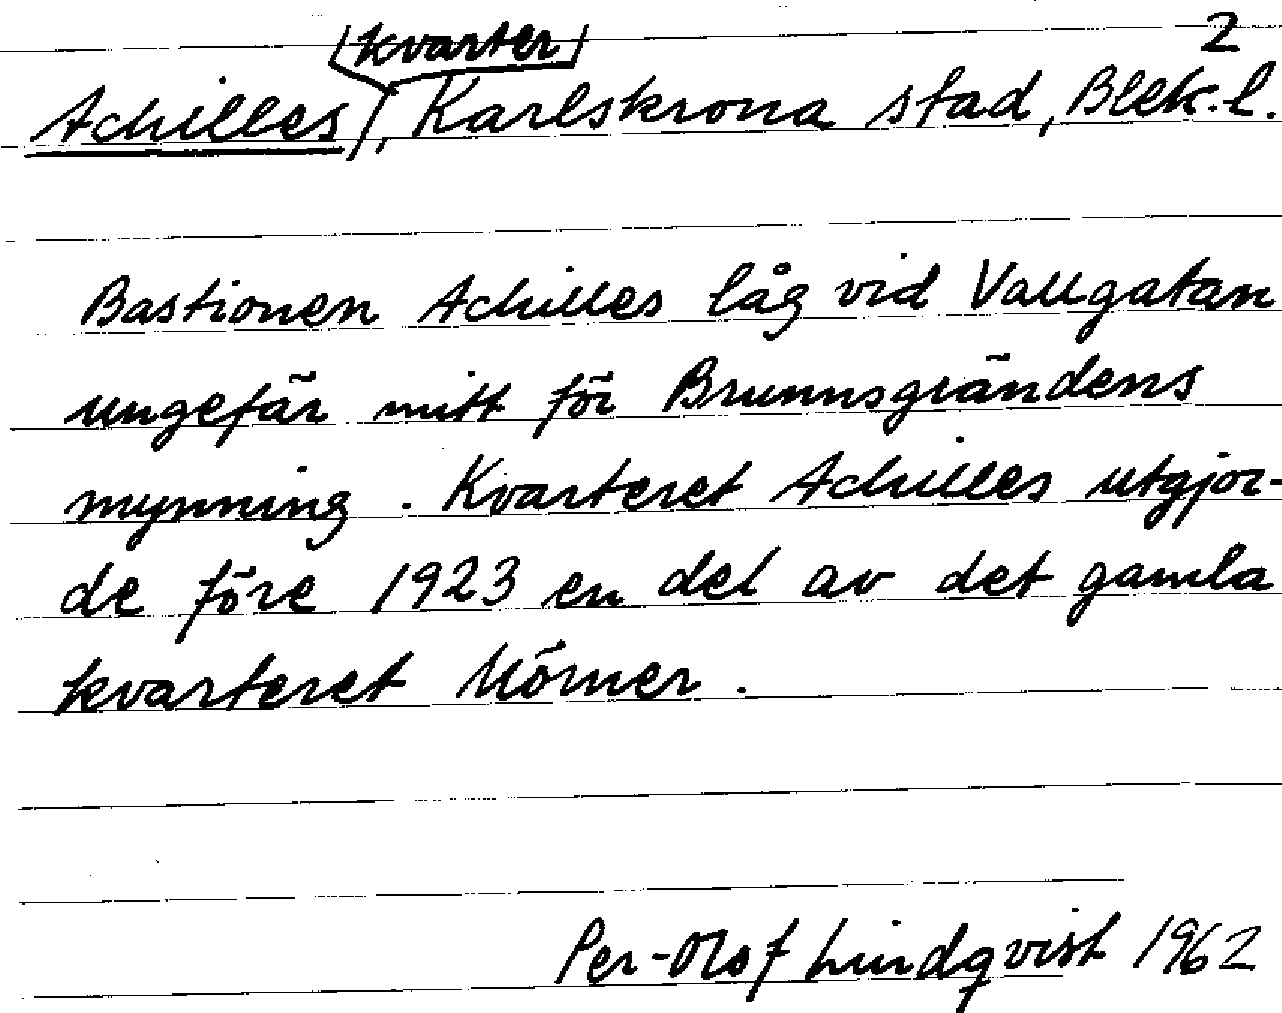 2
Achilles, kvarter, Karlskrona stad, Blek. l.
Bastionen Achilles låg vid Vallgatan
ungefär mitt för Brunnsgrändens
mynning. Kvarteret Achilles utgjor-
de före 1923 en del av det gamla
kvarteret Mörner.
Per-Olof Lindqvist 1962